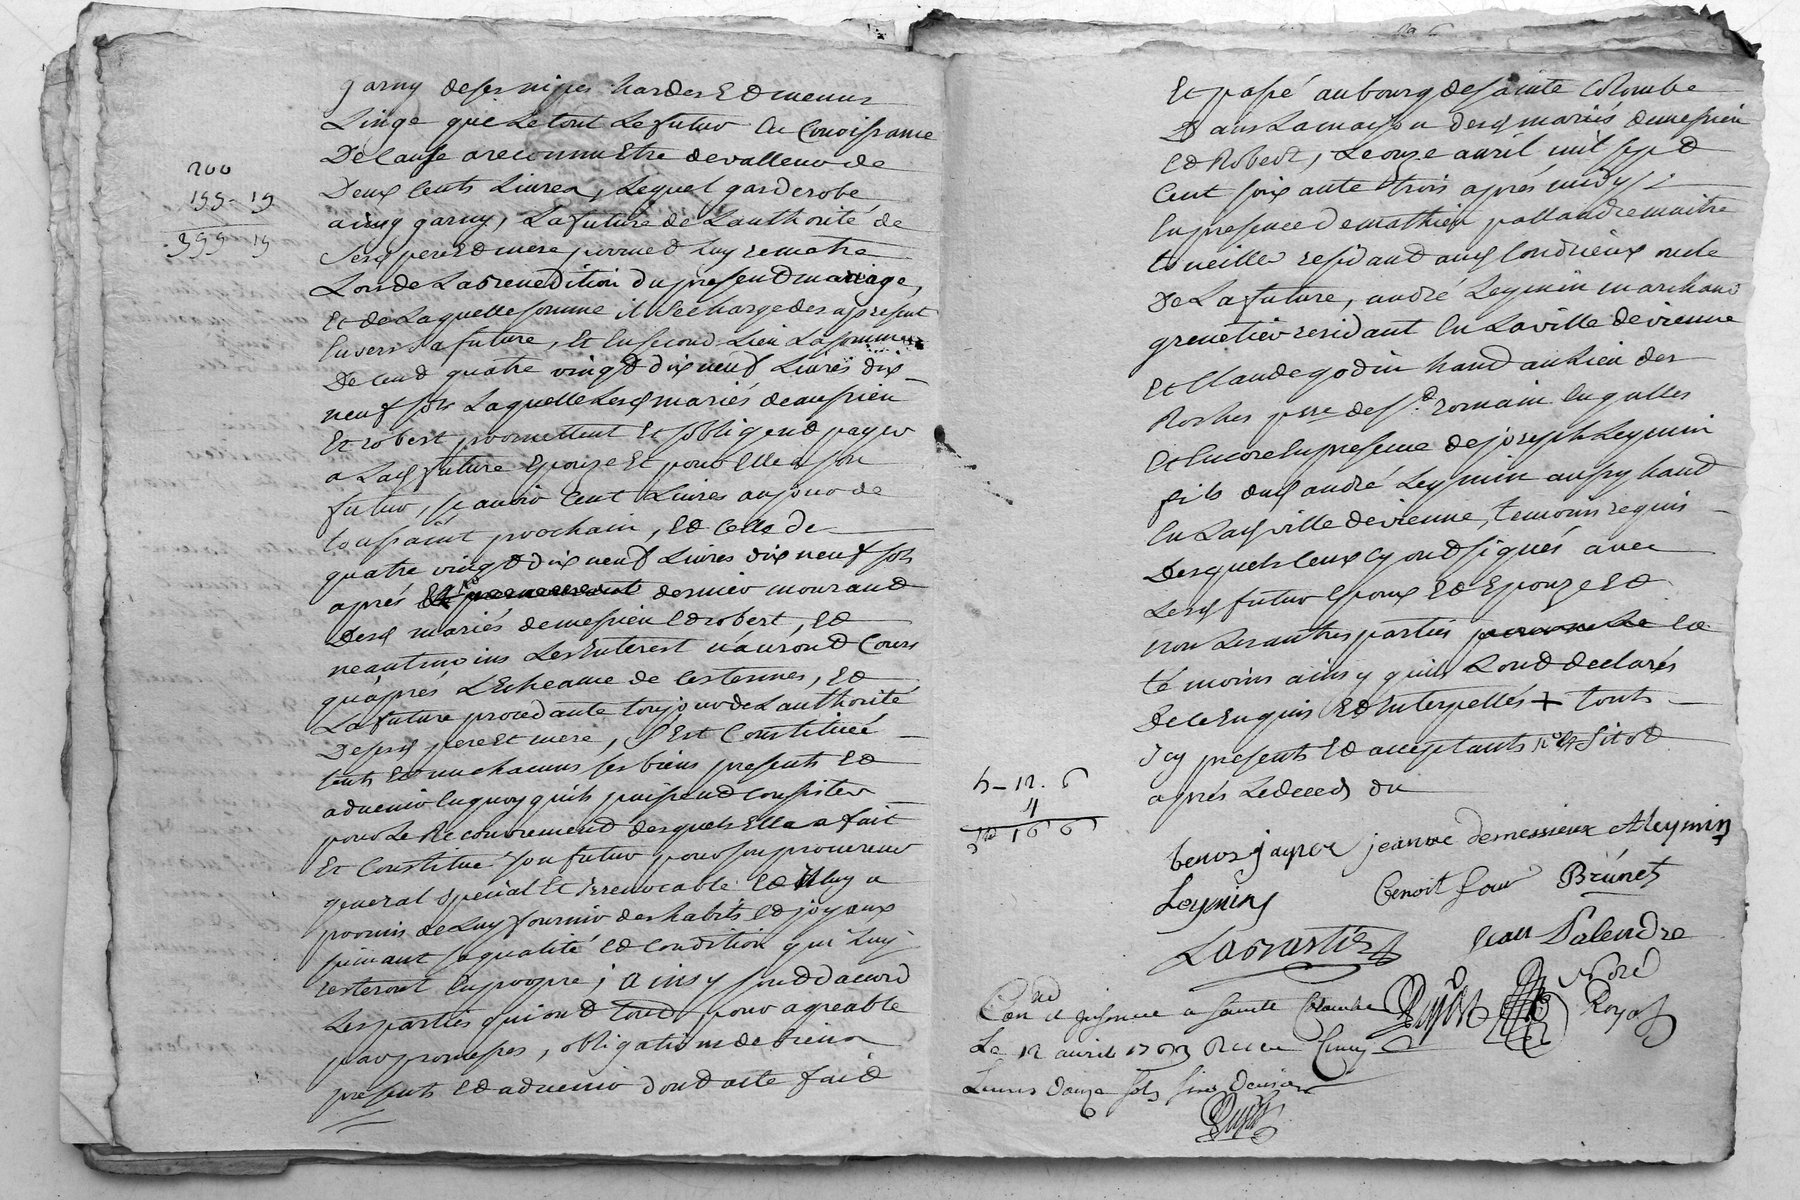 200
199 - 19
399   19
garny de ses nipes hardes Et menus
Linge que Le tout Le futur
De Cause a reconnu Etre de valleur de
Deux Cents Livres, Lequel garderobe
ainsy garny, La future de L'authorité de
Sesd pere Et mere promet luy remetre
Lors de La Benedition du present mariage,
Et de Laquelle somme il se charge des a present
Envers La future, Et En second Lieu La somme
De Cent quatre vingt dix neuf Livres dix
neuf sols Laquelle Lesd mariés demessieu
Et robert promettent Et s'obligent payer
a Lad future Epouze Et pour Elle a son
futur, sçavoir Cent Livres au jour de
toussaint prochain, Et Celle de
quatre vingt dix neuf Livres dix neuf sols
aprés dernier mourand
Desd mariés demessieu Et robert, Et
neantmoins Les Interest n'auront Cours
qu'aprés L'Echeance de Ces termes, Et
La future procedante toujour de L'authorité
De sesd pere Et mere, s'Est Constituée
touts Et un chacuns ses biens presents Et
advenir En quoy quils puissent Consister
pour Le Recouvrement desquels Elle a fait
Et Constitue son futur pour son procureur
general special Et irrevocable Et il luy a
promis de Luy fournir des habits Et joyaux
suivant sa qualité Et Condition qui luy
resteront En propre; ainsy sont d'accord
Les parties qui ont tout pour agreable
par promesses, obligations de biens
presents Et advenir dont acte fait
Et passé au bourg de sainte Colombe
Dans La maison desd mariés demessieu
Et Robert, Le onze avril mil sept
Cent soixante trois aprés midy
En presence de mathieu pallandre maitre
resident aud Condrieux oncle
De La future, andré Leymin marchand
grenetier residant En La ville de vienne
Et Claude godin hant au Lieu des
Roches psse de st romain En galles
Et Encore En presence de joseph Leymin
fils dud andré Leymin aussy hant
En Lad ville de vienne, temoins requis
Desquels Ceux cy ont signés avec
Lesd futur Epoux Et Epouze Et
non Les autres parties Et
témoins ainsy quils L'ont declarés
De ce Enquis Et Interpellés + touts
Icy presents Et acceptants
aprés Le deceds du
5 - 12. 6
4
16 6 6
jeanne demessieux ALeymin
Leymin Benoit Brúnet
Jean Palendre
Royas
Con et insinué a sainte Colombe
Le 12 avril 1763 Receu Cinq
Livres douze sols six deniers